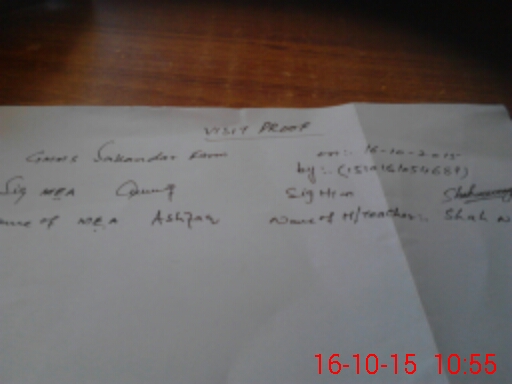 VISIT PROOF
GMMS Sakandar Farm on:- 16-10-2015
by:- (
Sig MEA Sig H/M
Name of MEA Ashfaq Name of H/Teacher:- Shah N
16-10-15 10:55